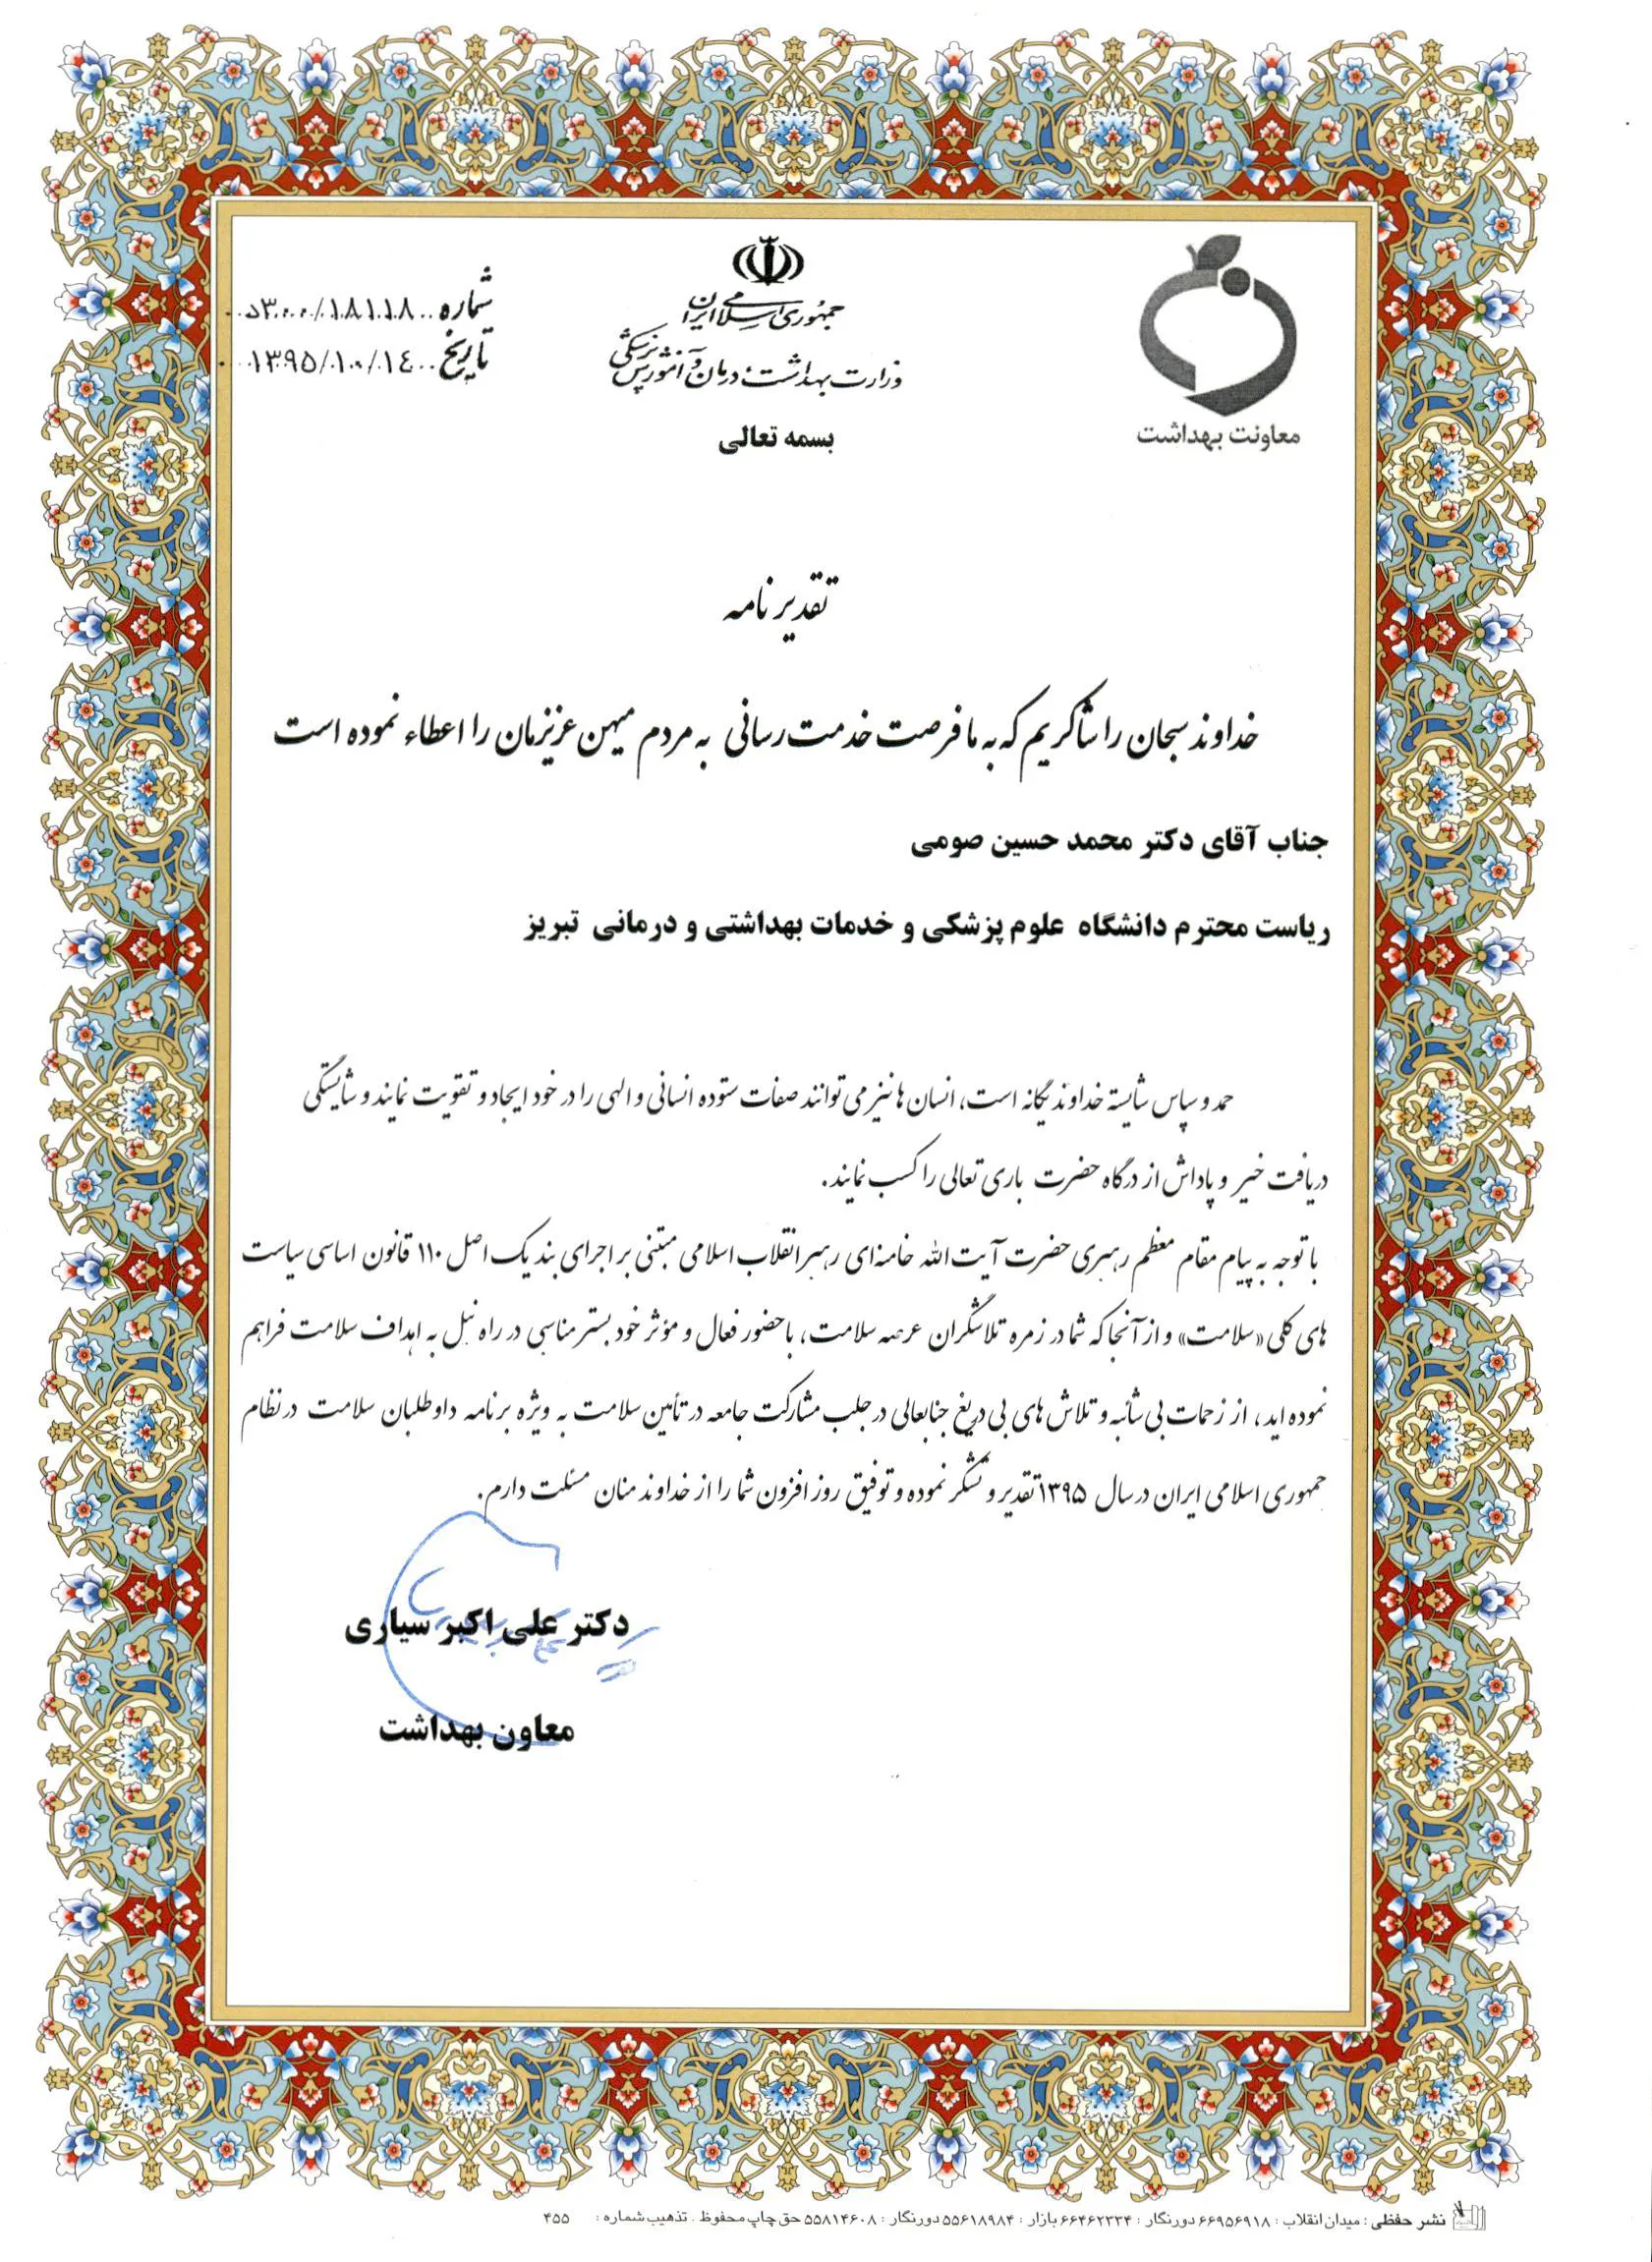 شماره ۵۳۰۰/۱۸۱۱۸
تاریخ ۱۳۹۵/۱۰/۱۴
جمهوری اسلامی ایران
وزارت بهداشت، درمان و آموزش پزشکی
معاونت بهداشت
بسمه تعالی
تقدیر نامه
خداوند سبحان را شاکریم که به ما فرصت خدمت رسانی به مردم میهن عزیزمان را اعطاء نموده است
جناب آقای دکتر محمد حسین صومی
ریاست محترم دانشگاه علوم پزشکی و خدمات بهداشتی و درمانی تبریز
حمد و سپاس شایسته خداوند یگانه است، انسان ها نیز می توانند صفات ستوده انسانی و الهی را در خود ایجاد و تقویت نمایند و شایستگی
دریافت خیر و پاداش از درگاه حضرت باری تعالی را کسب نمایند.
با توجه به پیام مقام معظم رهبری حضرت آیت الله خامنه‌ای رهبر انقلاب اسلامی مبتنی بر اجرای بند یک اصل ۱۱۰ قانون اساسی سیاست
های کلی «سلامت» و از آنجا که شما در زمره تلاشگران عرصه سلامت، با حضور فعال و مؤثر خود بستر مناسبی در راه نیل به اهداف سلامت فراهم
نموده اید، از زحمات بی شائبه و تلاش های بی دریغ جنابعالی در جلب مشارکت جامعه در تأمین سلامت به ویژه برنامه داوطلبان سلامت در نظام
جمهوری اسلامی ایران در سال ۱۳۹۵ تقدیر و تشکر نموده و توفیق روز افزون شما را از خداوند منان مسئلت دارم.
دکتر علی اکبر سیاری
معاون بهداشت
نشر حفظی : میدان انقلاب : ۶۶۹۵۶۹۱۸ دورنگار : ۶۶۴۶۲۲۳۴ بازار : ۵۵۶۱۸۹۸۴ دورنگار : ۵۵۸۱۴۶۰۸ حق چاپ محفوظ . تذهیب شماره : ۴۵۵